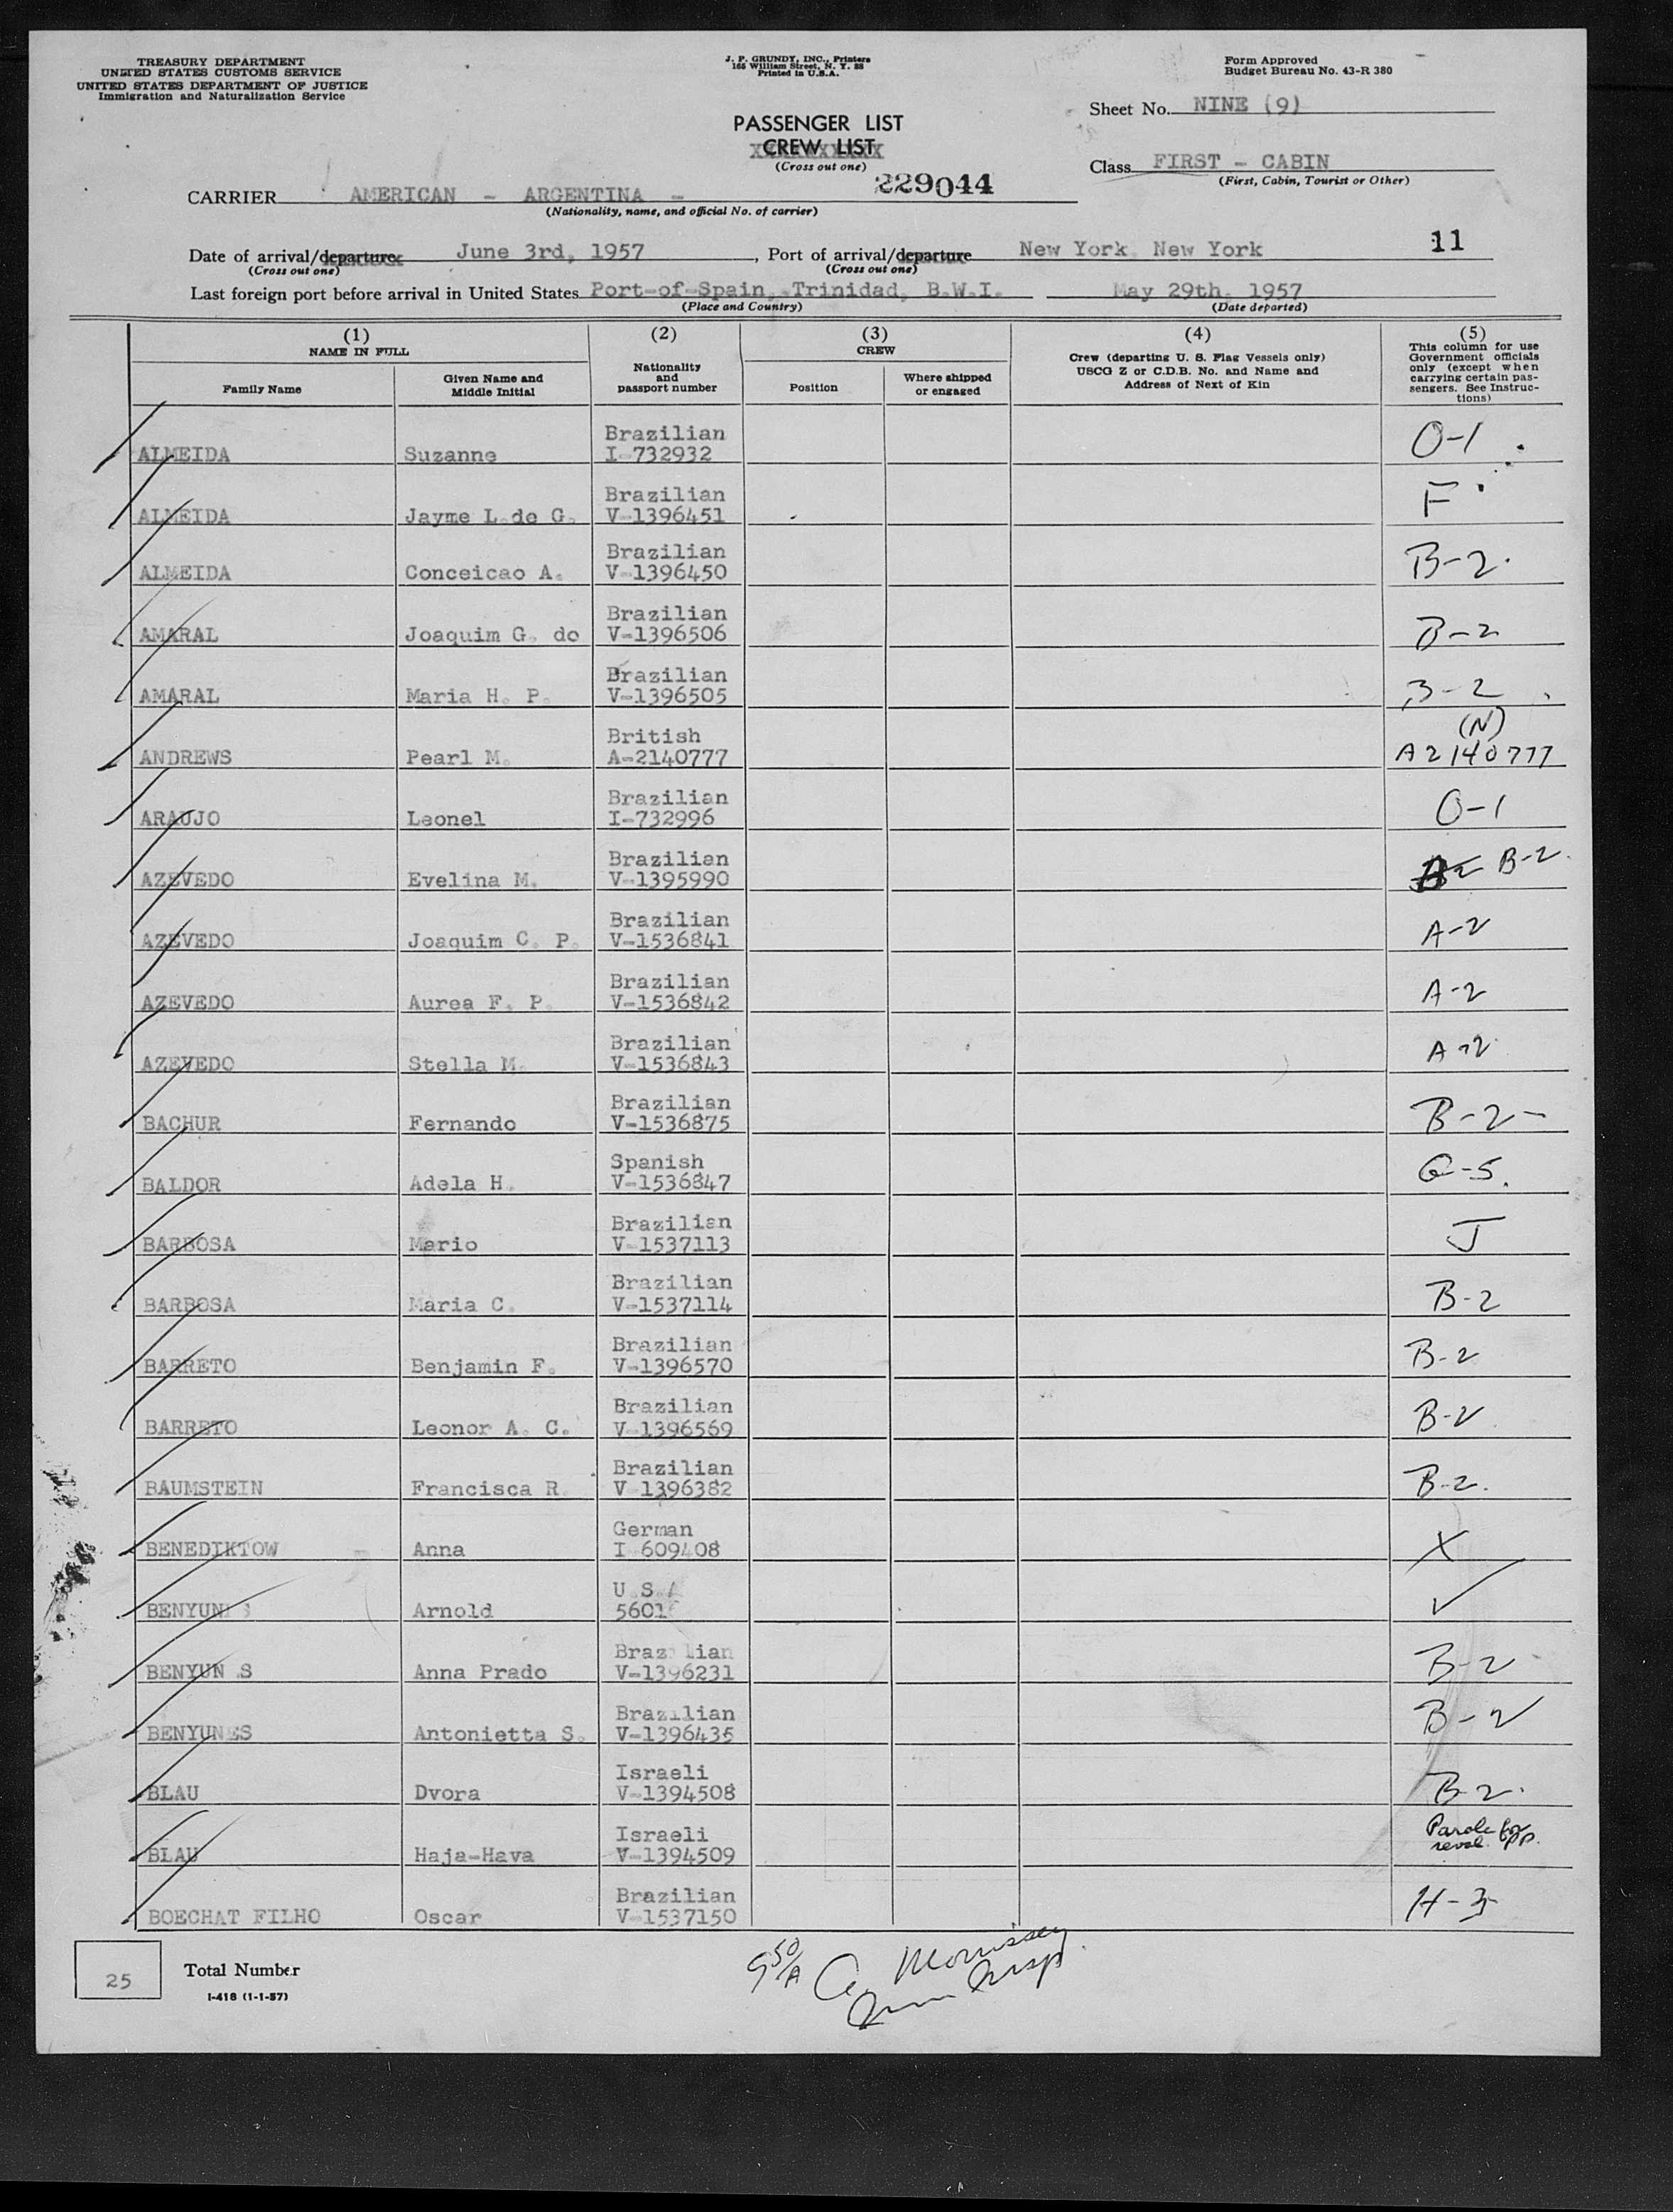 TREASURY DEPARTMENT
UNITED STATES CUSTOMS SERVICE
UNITED STATES DEPARTMENT OF JUSTICE
Immigration and Naturalization Service
J. P. GRUNDY, INC., Printers
165 William Street, N. Y. 38
Printed in U.S.A.
Form Approved
Budget Bureau No. 43-R 380
Sheet No. NINE (9)
PASSENGER LIST
CREW LIST
(Cross out one)
Class FIRST - CABIN
(First, Cabin, Tourist or Other)
229044
CARRIER AMERICAN - ARGENTINA -
(Nationality, name, and official No. of carrier)
11
Date of arrival/departure June 3rd, 1957, Port of arrival/departure New York, New York
(Cross out one) (Cross out one)
Last foreign port before arrival in United States Port-of-Spain, Trinidad, B.W.I. May 29th, 1957
(Place and Country) (Date departed)
(1) (2) (3) (4) (5)
NAME IN FULL
Family Name
Given Name and
Middle Initial
Nationality
and
passport number
CREW
Position
Where shipped
or engaged
Crew (departing U. S. Flag Vessels only)
USCG Z or C.D.B. No. and Name and
Address of Next of Kin
This column for use
Government officials
only (except when
carrying certain pas-
sengers. See Instruc-
tions)
Brazilian
ALMEIDA Suzanne I-732932 O-1
Brazilian
ALMEIDA Jayme L.de G. V-1396451 F
Brazilian
ALMEIDA Conceicao A. V-1396450 B-2
Brazilian
AMARAL Joaquim G. do V-1396506 B-2
Brazilian
AMARAL Maria H. P. V-1396505 B-2
British (N)
ANDREWS Pearl M. A-2140777 A2140777
Brazilian
ARAUJO Leonel I-732996 O-1
Brazilian
AZEVEDO Evelina M. V-1395990 B-2
Brazilian
AZEVEDO Joaquim C. P. V-1536841 A-2
Brazilian
AZEVEDO Aurea F. P. V-1536842 A-2
Brazilian
AZEVEDO Stella M. V-1536843 A-2
Brazilian
BACHUR Fernando V-1536875 B-2
Spanish
BALDOR Adela H. V-1536847 G-5
Brazilian
BARBOSA Mario V-1537113 J
Brazilian
BARBOSA Maria C. V-1537114 B-2
Brazilian
BARRETO Benjamin F. V-1396570 B-2
Brazilian
BARRETO Leonor A. C. V-1396569 B-2
Brazilian
BAUMSTEIN Francisca R. V-1396382 B-2
German
BENEDIKTOW Anna I-609408 X
U.S.
Arnold
Brazilian
BENYUNES Anna Prado V-1396231 B-2
Brazilian
BENYUNES Antonietta S. V-1396435 B-2
Israeli
BLAU Dvora V-1394508 B-2
Israeli Parole for
BLAU Haja-Hava V-1394509
Brazilian
BOECHAT FILHO Oscar V-1537150 H-3
25 Total Number
I-418 (1-1-57)
Morrissey